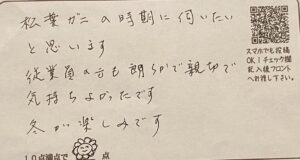 松葉ガニの時期に伺いたい
と思います
従業員の方も朗らかで親切で
気持ちよかったです
冬が楽しみです
スマホでも投稿
OK!チェック欄
記入後フロント
へお渡し下さい。
10点満点で 点